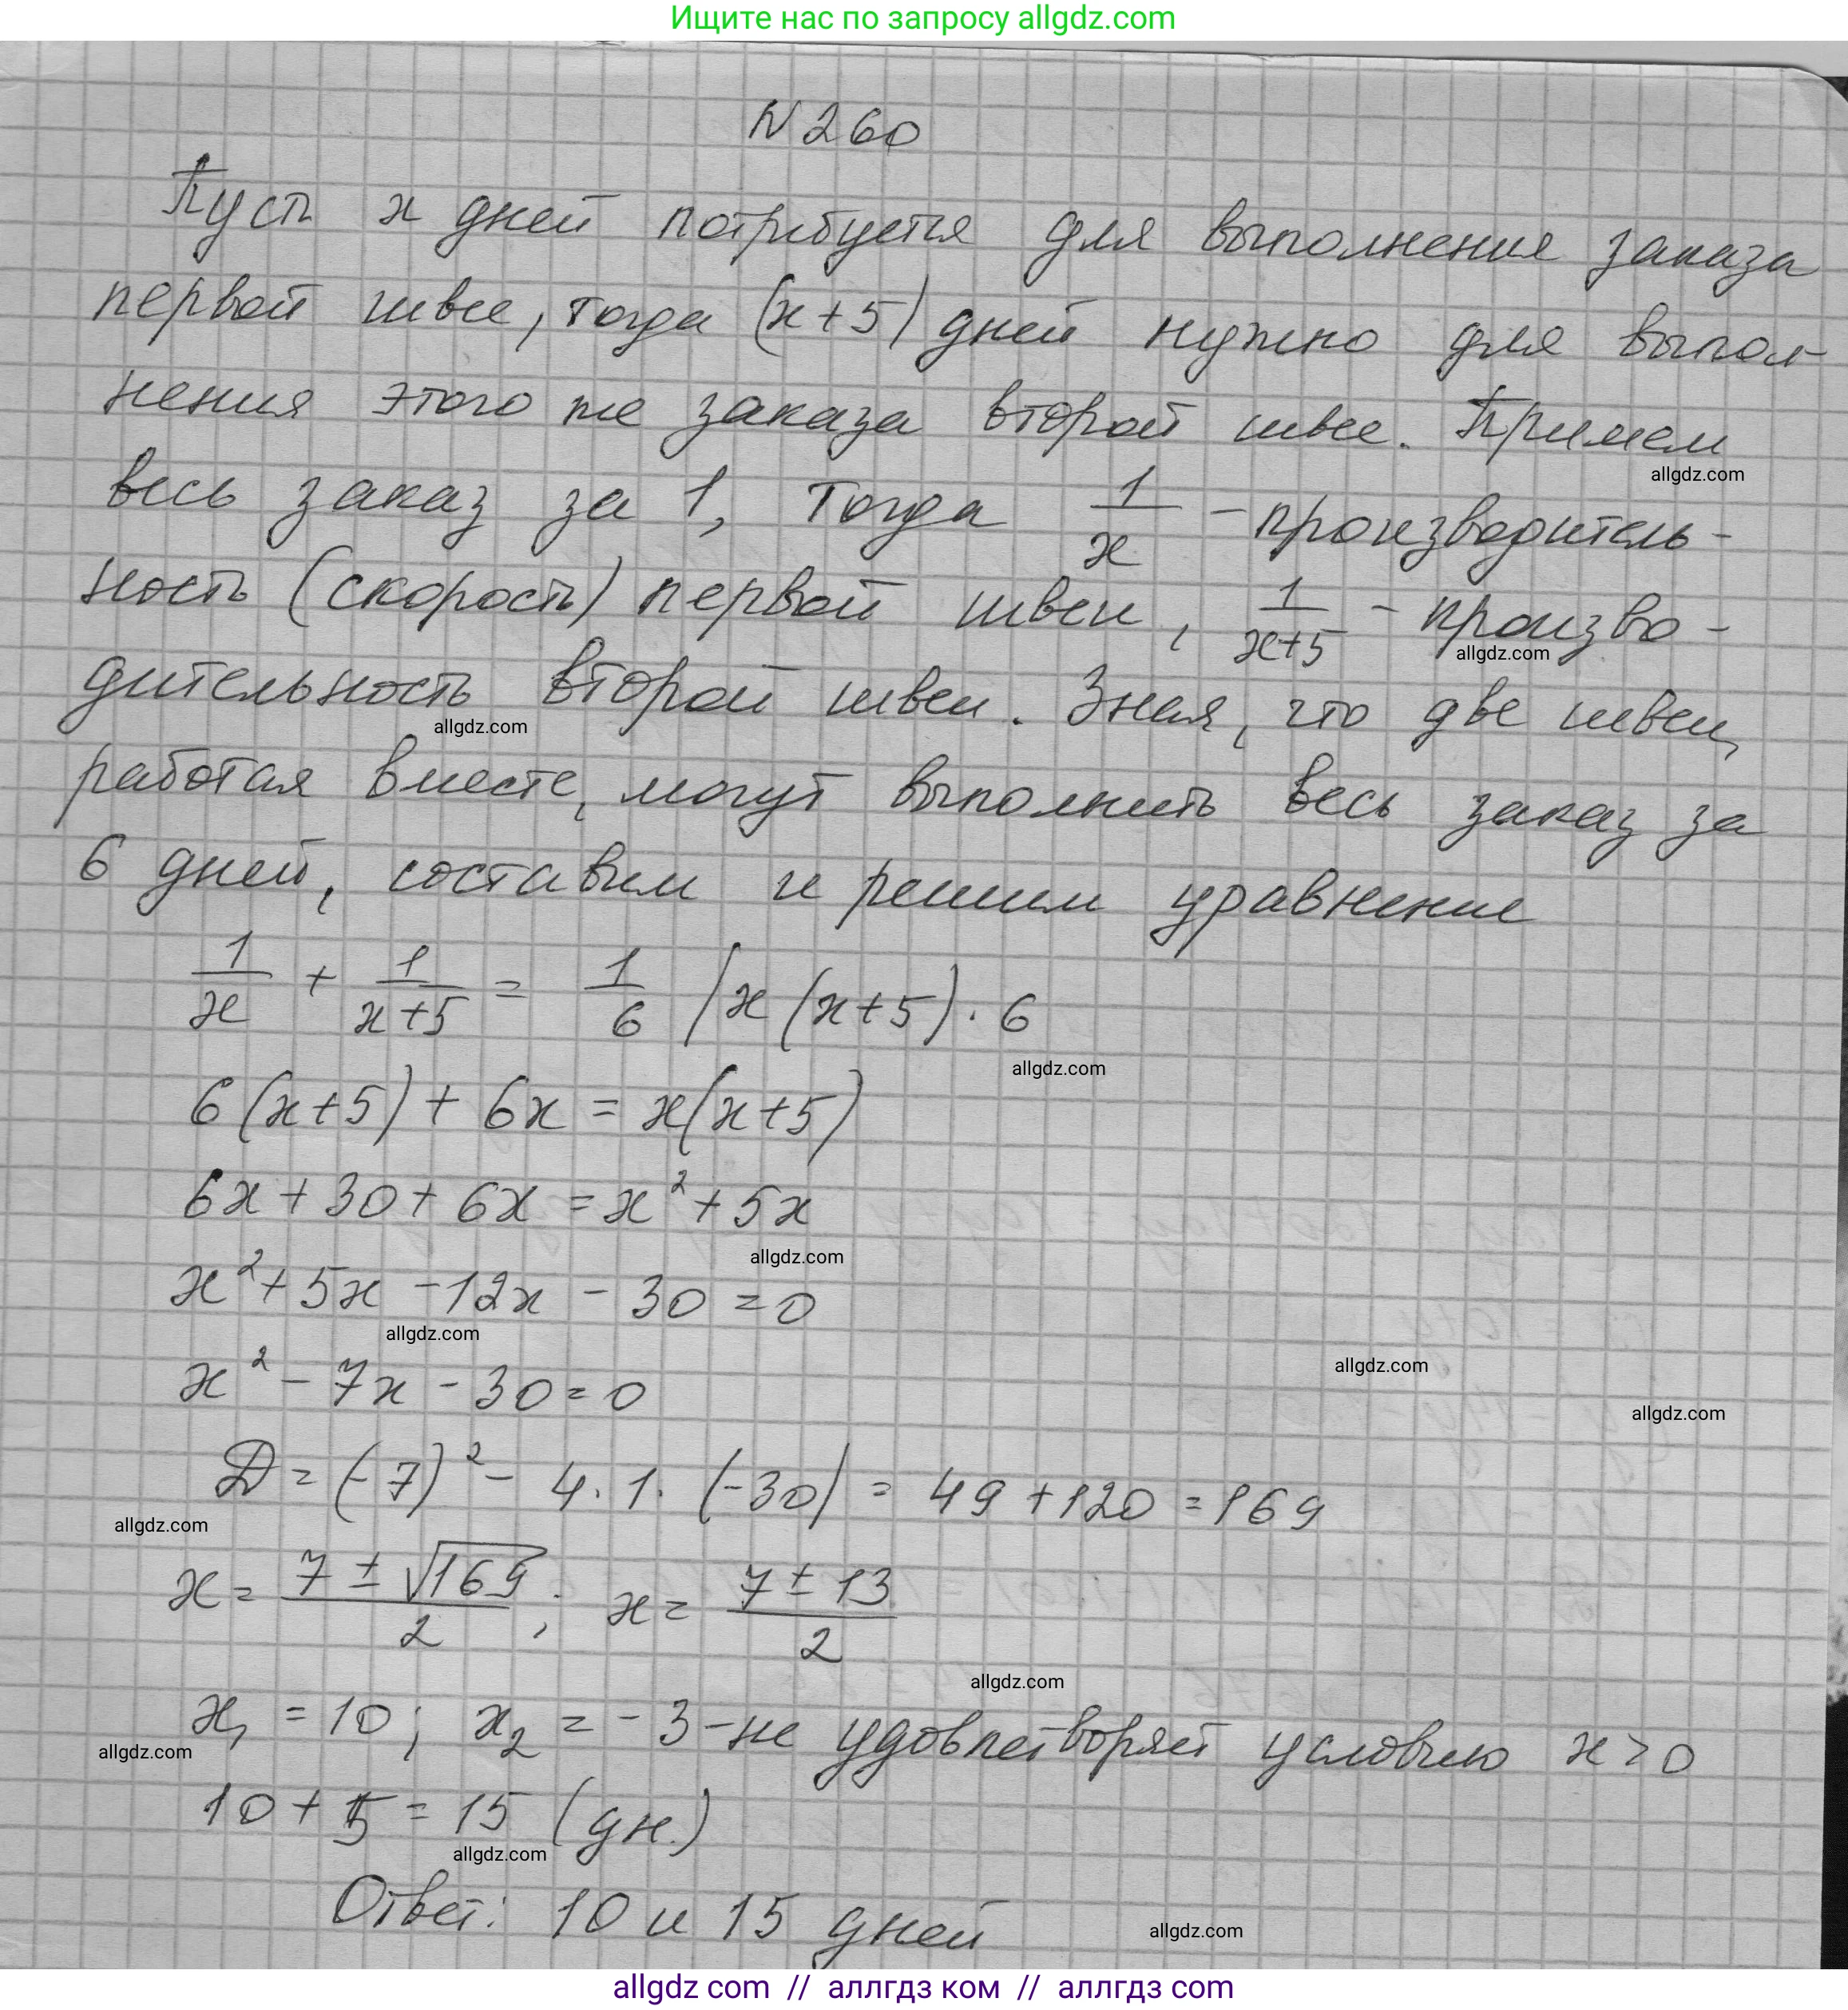 Ищите нас по запросу allgdz.com
N 260
Пусть x дней потребуется для выполнения заказа
первой швее, тогда (x+5) дней нужно для выпол-
нения этого же заказа второй швее. Примем
allgdz.com
весь заказ за 1, тогда 1/x - производитель-
ность (скорость) первой швеи, 1/(x+5) - произво-
allgdz.com
дительность второй швеи. Зная, что две швеи,
allgdz.com
работая вместе, могут выполнить весь заказ за
6 дней, составим и решим уравнение
1/x + 1/(x+5) = 1/6 | x(x+5)·6
allgdz.com
6(x+5) + 6x = x(x+5)
6x + 30 + 6x = x² + 5x
allgdz.com
x² + 5x - 12x - 30 = 0
allgdz.com
allgdz.com
x² - 7x - 30 = 0
allgdz.com
D = (-7)² - 4·1·(-30) = 49 + 120 = 169
allgdz.com
x = (7 ± √169)/2 ; x = (7 ± 13)/2
allgdz.com
x₁ = 10; x₂ = -3 - не удовлетворяет условию x > 0
allgdz.com
10 + 5 = 15 (дн.)
allgdz.com
Ответ: 10 и 15 дней
allgdz.com
allgdz com // аллгдз ком // аллгдз com